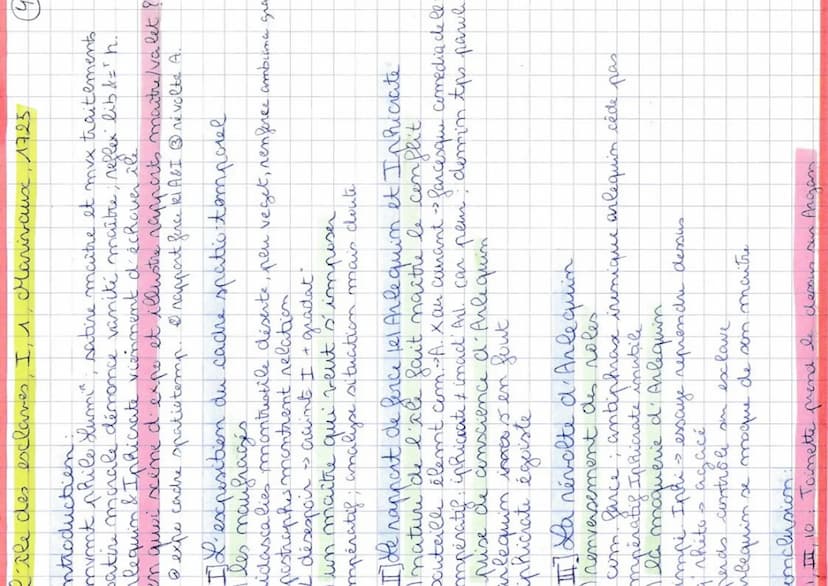 (4
l'île des esclaves, I, 1, Marivaux, 1725
ntroduction:
mvmt philo Lumi°, satire maître et mvx traitements
satire morale dénonce vanité maître, reflex° lib &=té h.
lequin & Iphicrate viennent d'échouer île
n quoi scène d'expo et illustre rapports maître/valet?
① expo cadre spatiotemp. ② rapport force M A&I ③ révolte A.
I] L'exposition du cadre spatio-temporel
les naufragés
idascalies montrent île déserte, peu veget, renforce ambiance
postrophes montrent relation
désespoir -> crainte I + gradat°
un maître qui veut s'imposer
mpératif; analyse situation mais doute
II] Le rapport de force Arlequin et Iphicrate
nature de l'île fait naître le conflit
outeille élemt com.->A. X au courant -> farcesque comedia de
mpératif: iphicrate ≠ inact° Arl car peur; domin tps parole
rise de conscience d'Arlequin
rlequin en fout
phicrate égoïste
III] La révolte d'Arlequin
renversement des rôles
com farce; antiphrase ironique arlequin cède pas
mpératif Iphicrate inutile
la moquerie d'Arlequin
mpé Iphi -> essaye reprendre dessus
-> agacé
erds contrôle sur esclave
lequin se moque de son maître
nclusion:
, III 10 Toinette prend le dessus sur Argan